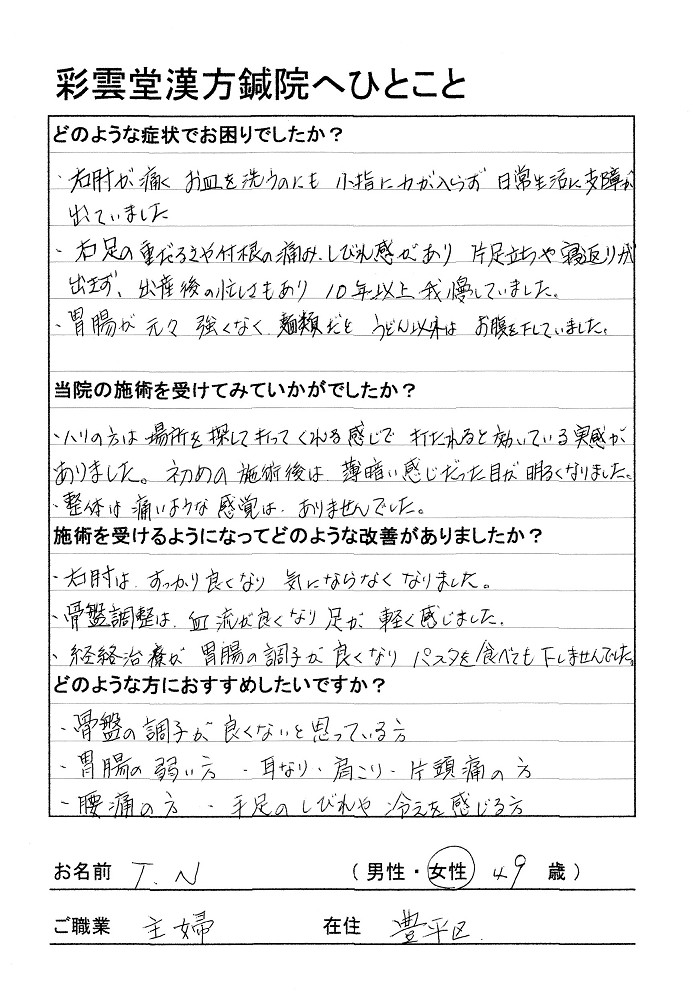 彩雲堂漢方鍼院へひとこと
どのような症状でお困りでしたか？
・右肘が痛く お皿を洗うのにも 小指に力が入らず 日常生活に支障が
出ていました
・右足の重だるさや付根の痛み、しびれ感があり 片足立ちや寝返りが
出来ず、出産後の忙しさもあり 10年以上 我慢していました。
・胃腸が 元々 強くなく、麺類だと うどん以外は お腹を下していました。
当院の施術を受けてみていかがでしたか？
・ハリの方は 場所を探して打ってくれる感じで 打たれると効いている実感が
ありました。初めの施術後は 薄暗い感じだった目が明るくなりました。
・整体は痛いような感覚は、ありませんでした。
施術を受けるようになってどのような改善がありましたか？
・右肘は、すっかり良くなり 気にならなくなりました。
・骨盤調整は、血流が良くなり足が 軽く感じました。
・経絡治療が 胃腸の調子が良くなり パスタを食べても下しませんでした。
どのような方におすすめしたいですか？
・骨盤の調子が良くないと思っている方
・胃腸の弱い方 ・耳なり・肩こり・片頭痛の方
・腰痛の方 ・手足のしびれや 冷えを感じる方
お名前 T.N （男性・女性 49 歳）
ご職業 主婦 在住 豊平区